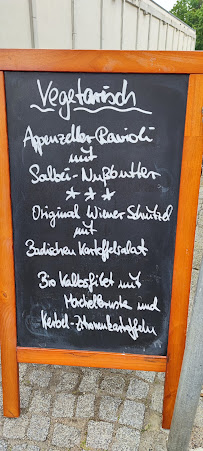 Vegetarisch
Appenzeller-Ravioli
mit
Salbei-Nußbutter
***
Original Wiener Schnitzel
mit
Badischen Kartoffelsalat
Bio Kalbsfilet mit
und
Kerbel-Zitronenkartoffeln